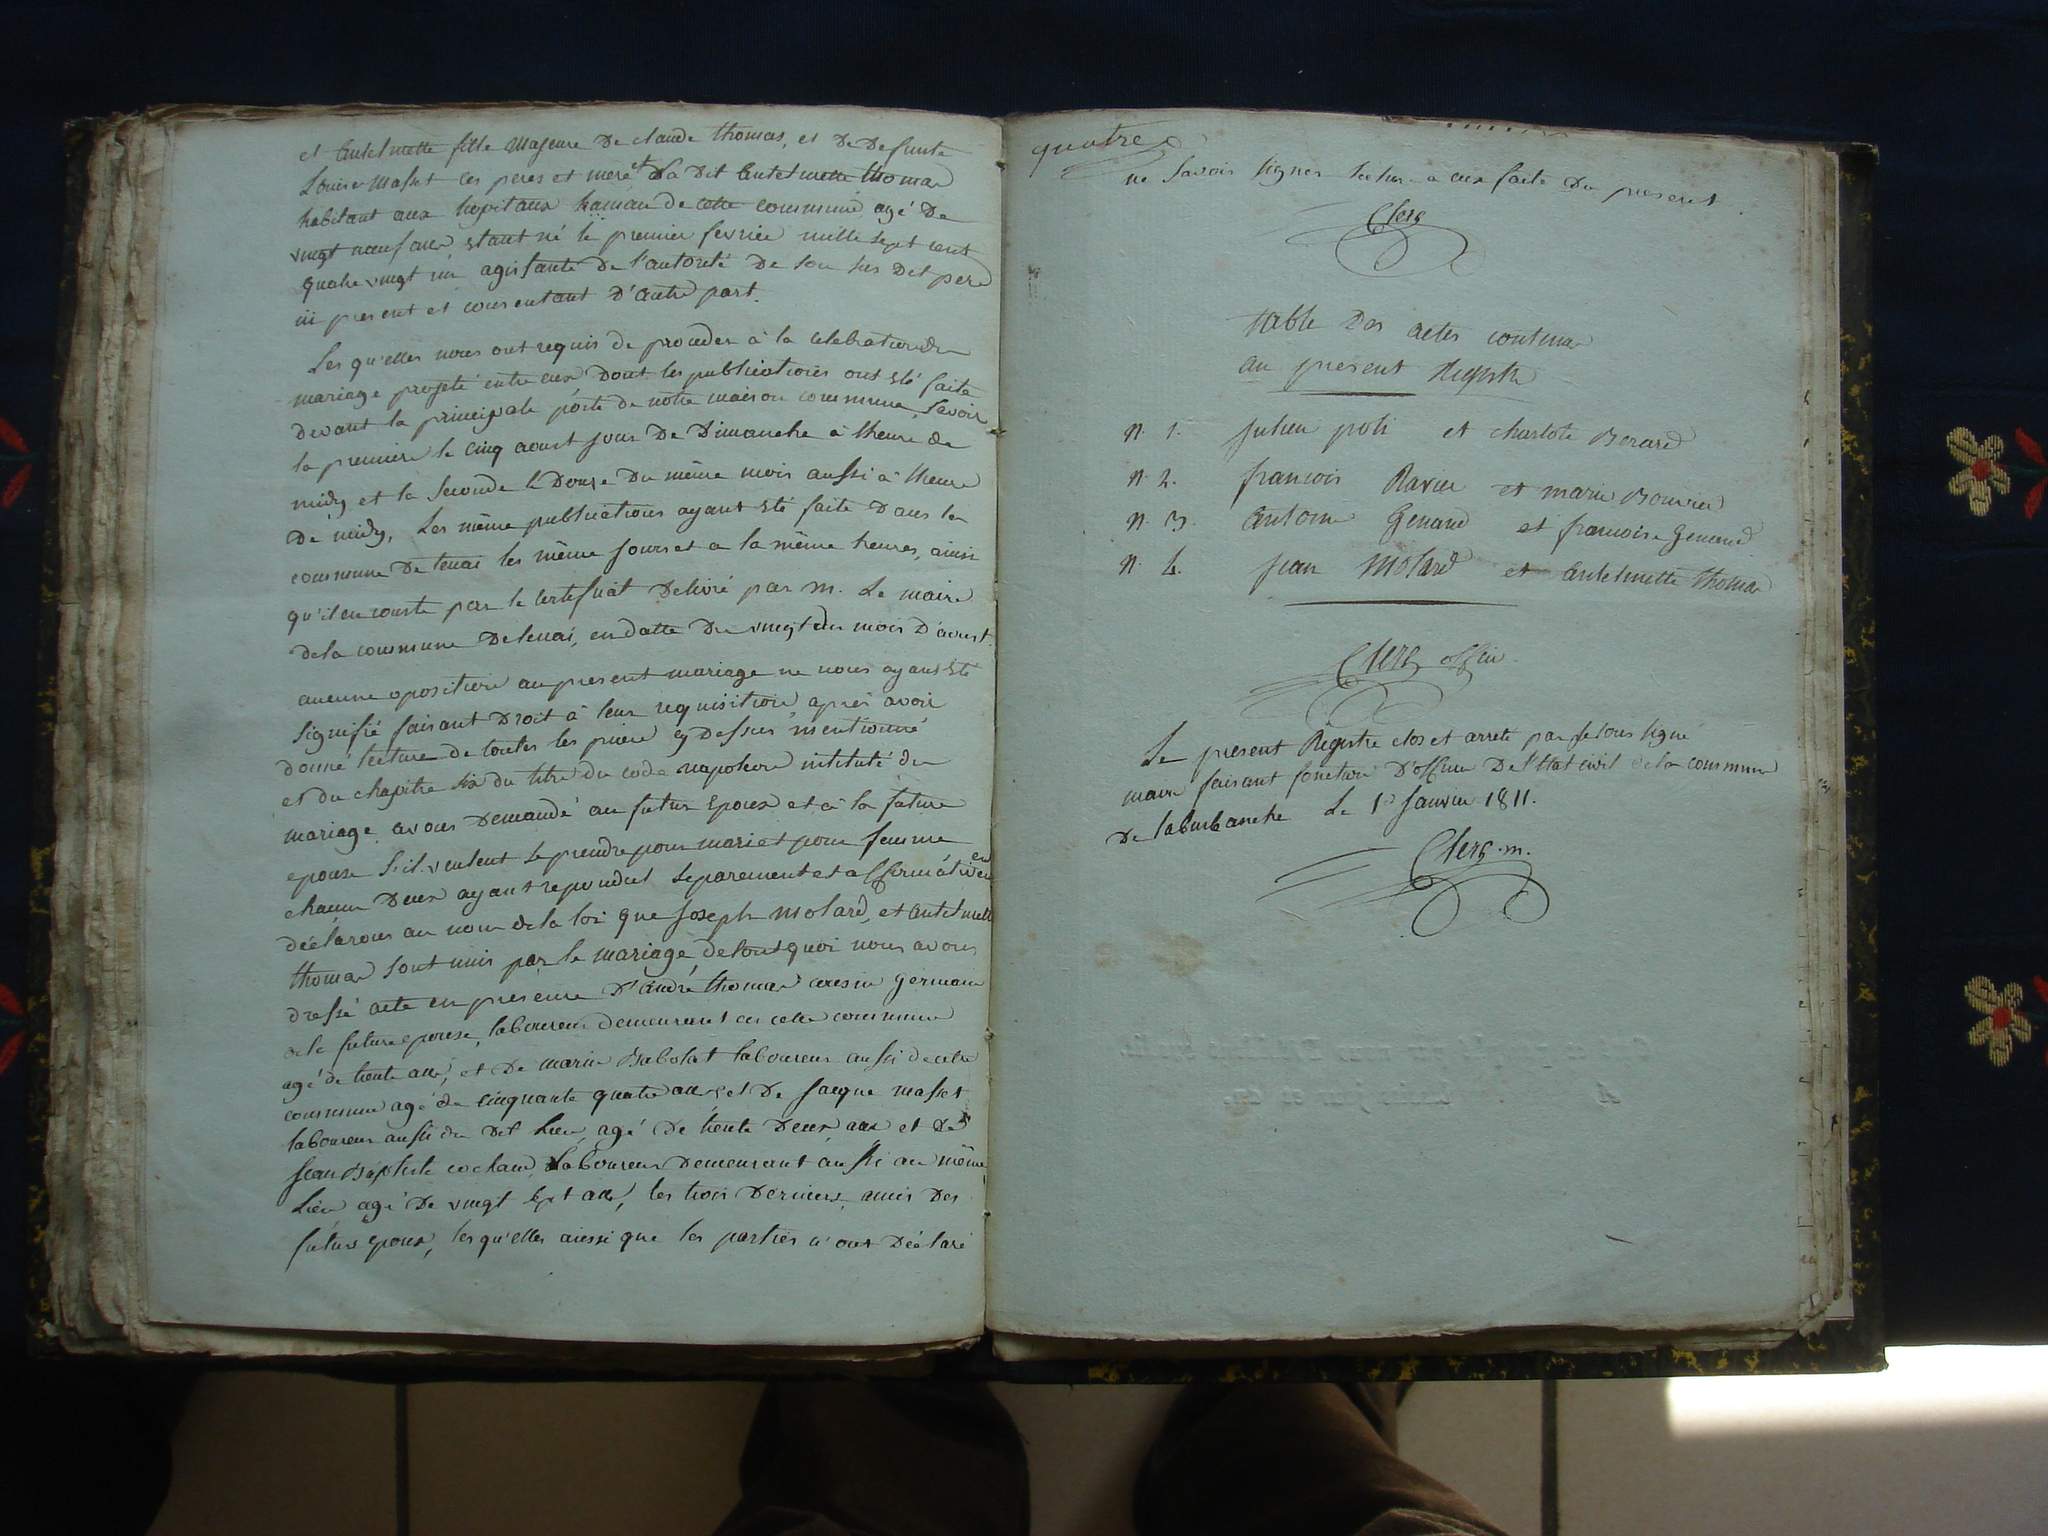 et antelmette fille majeure De claude thomas, et De Defunte
Louise Masset ces peres et mere et la Dit antelmette thomas
habitant aux hopitaux hameau de cette commune agé De
vingt neuf ans, etant né le premier fevrier mille sept cent
quatre vingt un agissante De l'autorité De son sus Dit pere
ici present et consentant D'autre part.
Les qu'elles nous ont requis de proceder à la celebration du
mariage projeté entre eux Dont les publications ont eté faite
Devant la principale porte de notre maison commune, Savoir
la premiere le cinq aoust jour De Dimanche à lheure de
midy et la Seconde le Douze Du même mois aussi à lheure
De midy, Les même publications ayant eté faite Dans la
commune De tenai les même jours et a la même heures, ainsi
qu'il en conste par le certificat Delivré par m. Le maire
dela commune De tenai, en datte Du vingt du mois D'aoust.
aucune oposition au present mariage ne nous ayant eté
Signifié faisant Droit à leur requisition après avoir
donné lecture de toutes les piece cy Dessus mentionné
et du chapitre six du titre du code napoleon intitulé du
mariage avons Demandé au futur Epoux et à la future
epouse S'il veulent se prendre pour mari et pour femme
chacun Deux ayant repondut Separement et affirmativement
déclarons au nom de la loi que Joseph Molard, et antelmette
thomas Sont unis par le mariage, de tout quoi nous avons
dressé acte en presence D'andré thomas cousin germain
de la future epouse, laboureur demeurant en cette commune
agé de trente ans, et De marin Babolat laboureur aussi de cette
commune agé de cinquante quatre ans et De Jacque masset
laboureur aussi du Dit Lieu agé De trente Deux ans et De
Jean Baptiste cochand Laboureur Demeurant aussi au même
Lieu agé De vingt sept ans, les trois Derniers amis Des
futurs epoux, les qu'elles aiessi que les parties n'ont Déclaré
quatre
ne Savoir Signer lecture a eux faite Du present.
Clerg
table Des actes contenus
au present Registre
N. 1. Julien poli et charlote Berard
N. 2. francois Ravier et marie Bouvier
N. 3. antoine Genand et francoise Genand
N. 4. Jean Molard et antelmette thomas
Clerg officier
Le present Registre clos et arreté par Je Sous Signé
maire faisant fonction D'officier De l'Etat civil de la commune
De laburbanche Le 1er Janvier 1811.
Clerg. m.